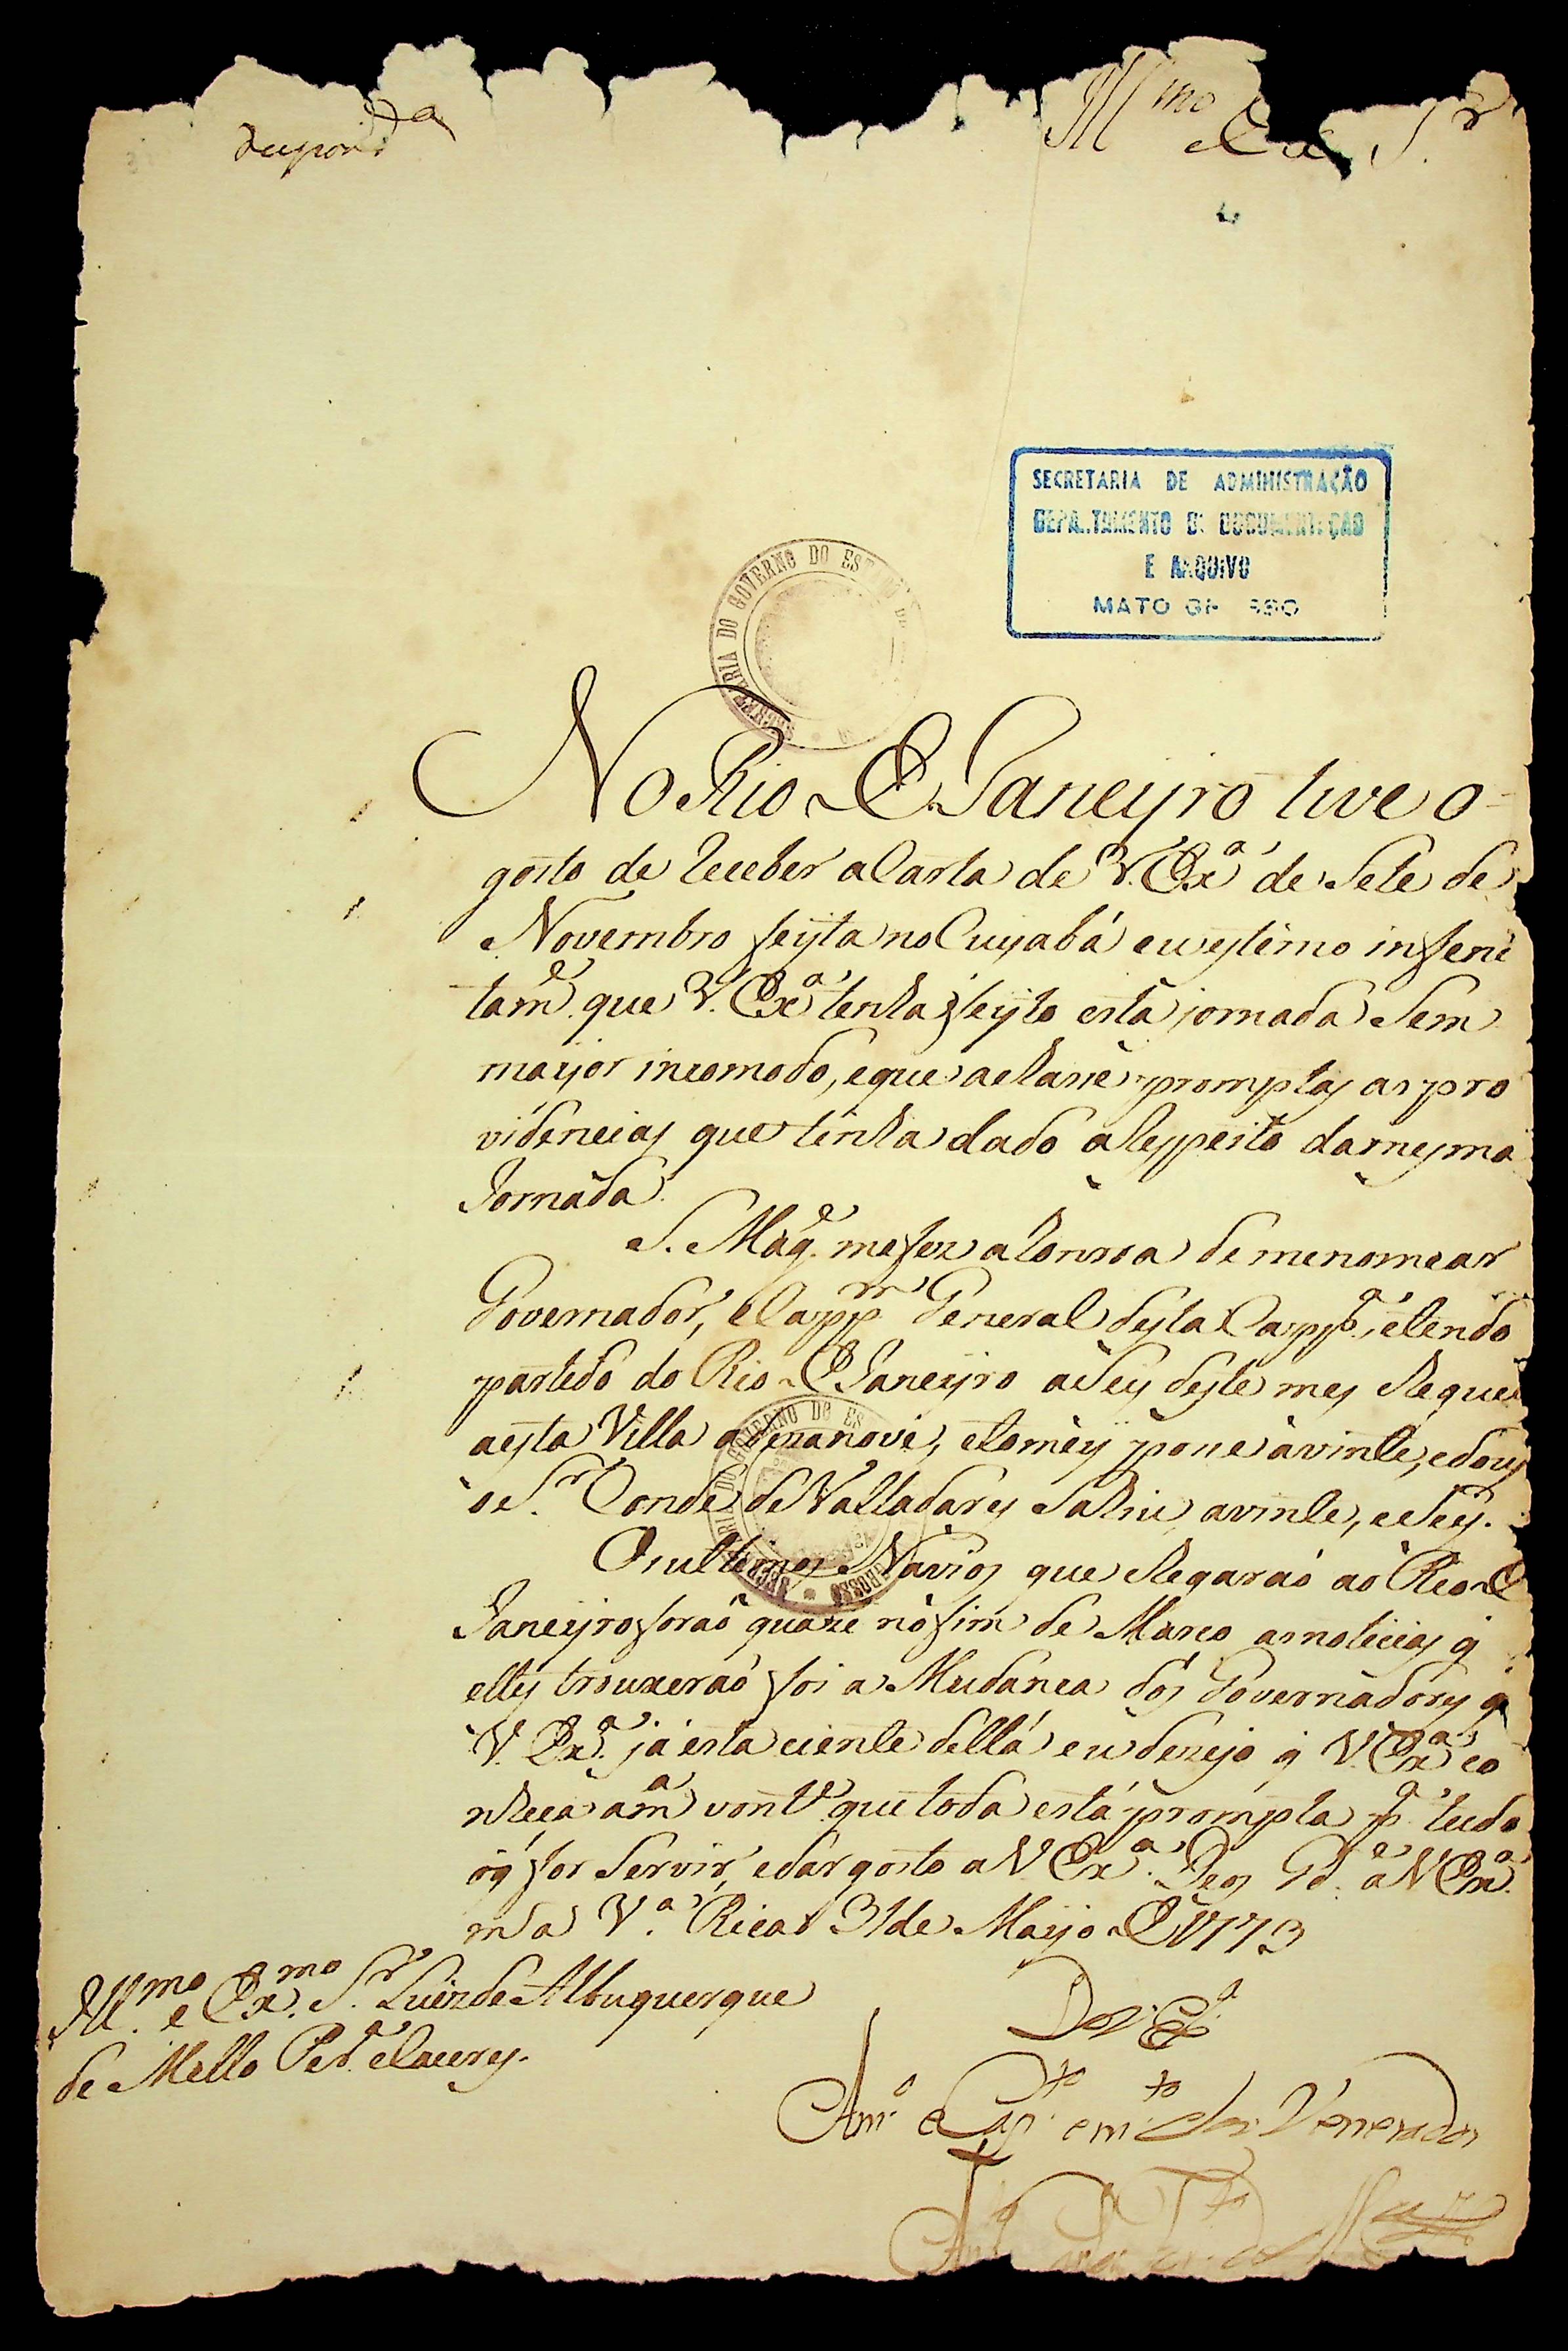 respond.da
Ill.mo e Ex S.r
SECRETARIA DE ADMINISTRAÇÃO
DEPARTAMENTO DE DOCUMENTAÇÃO
E ARQUIVO
MATO GROSSO
SECRETARIA DO GOVERNO DO ESTADO
No Rio de Janeyro tive o
gosto de receber a Carta de V. Ex.a de Sete de
Novembro feyta no Cuyabá eu estimo infeni
tam.e que V. Ex.a tenha feyto esta jornada Sem
mayor incomodo, e que achase promptas as pro
videncias que tinha dado a Respeito da mesma
Jornada.
S. Mag.e me fez a honrra de me nomear
Governador, e Capp.m General desta Capp.a, e tendo
partido do Rio de Janeyro a Seis deste mes cheguei
a esta Villa a dezanove, e tomey posse a vinte, e dous
o S.r Conde de Valladares Sahiu a vinte, e Seis.
Os ultimos Navios que chegaraõ ao Rio de
Janeyro foraõ quaze no fim de Março as noticias q
elles trouxeraõ foi a Mudança dos Governadores q
V. Ex.a já esta ciente della eu dezejo q V. Ex.a co
nheça a m.a vont.e que toda está prompta p.a tudo
o q for Servir, e dar gosto a V Ex.a. Deos G.de a V Ex.a
m a V.a Rica 31 de Mayo de 1773
Ill.mo e Ex.mo S.r Luiz de Albuquerque
de Mello Per.a e Caceres.
De V. Ex.a
Am.o e Cap.to e m.to seu Venerador